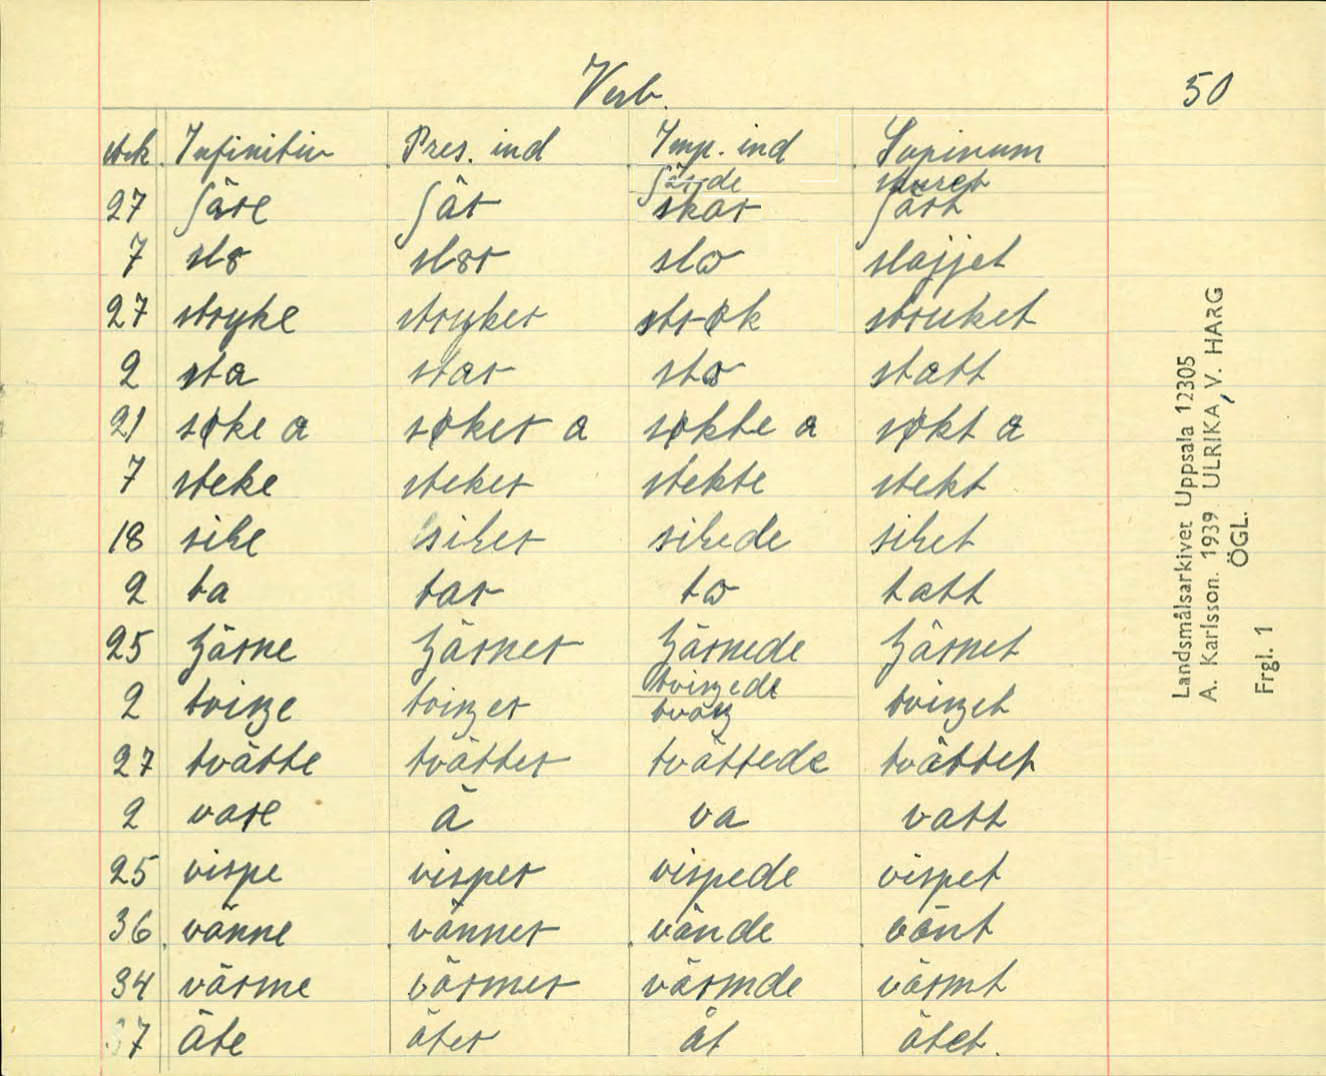 Verb.
50
stk. Infinitiv Pres. ind Imp. ind Supinum
ʃärde skuret
27 ʃäre ʃär skar ʃärt
7 slɵ slɵr slɷ slajjet
27 stryke stryker strøk struket
2 sta star stɷ statt
21 søke a søker a søkte a søkt a
7 steke steker stekte stekt
18 sike siker sikede siket
2 ta tar tɷ tatt
25 järner järnede järnet
tviŋede
2 tviŋe tviŋer tvaŋ tviŋet
27 tvätte tvätter tvättede tvättet
2 vare ä va vatt
25 vispe visper vispede vispet
36 vänne vänner vände vänt
34 värme värmer värmde värmt
7 äte äter åt ätet.
Landsmålsarkivet Uppsala 12305
A. Karlsson. 1939 ULRIKA, V. HARG
ÖGL.
Frgl. 1